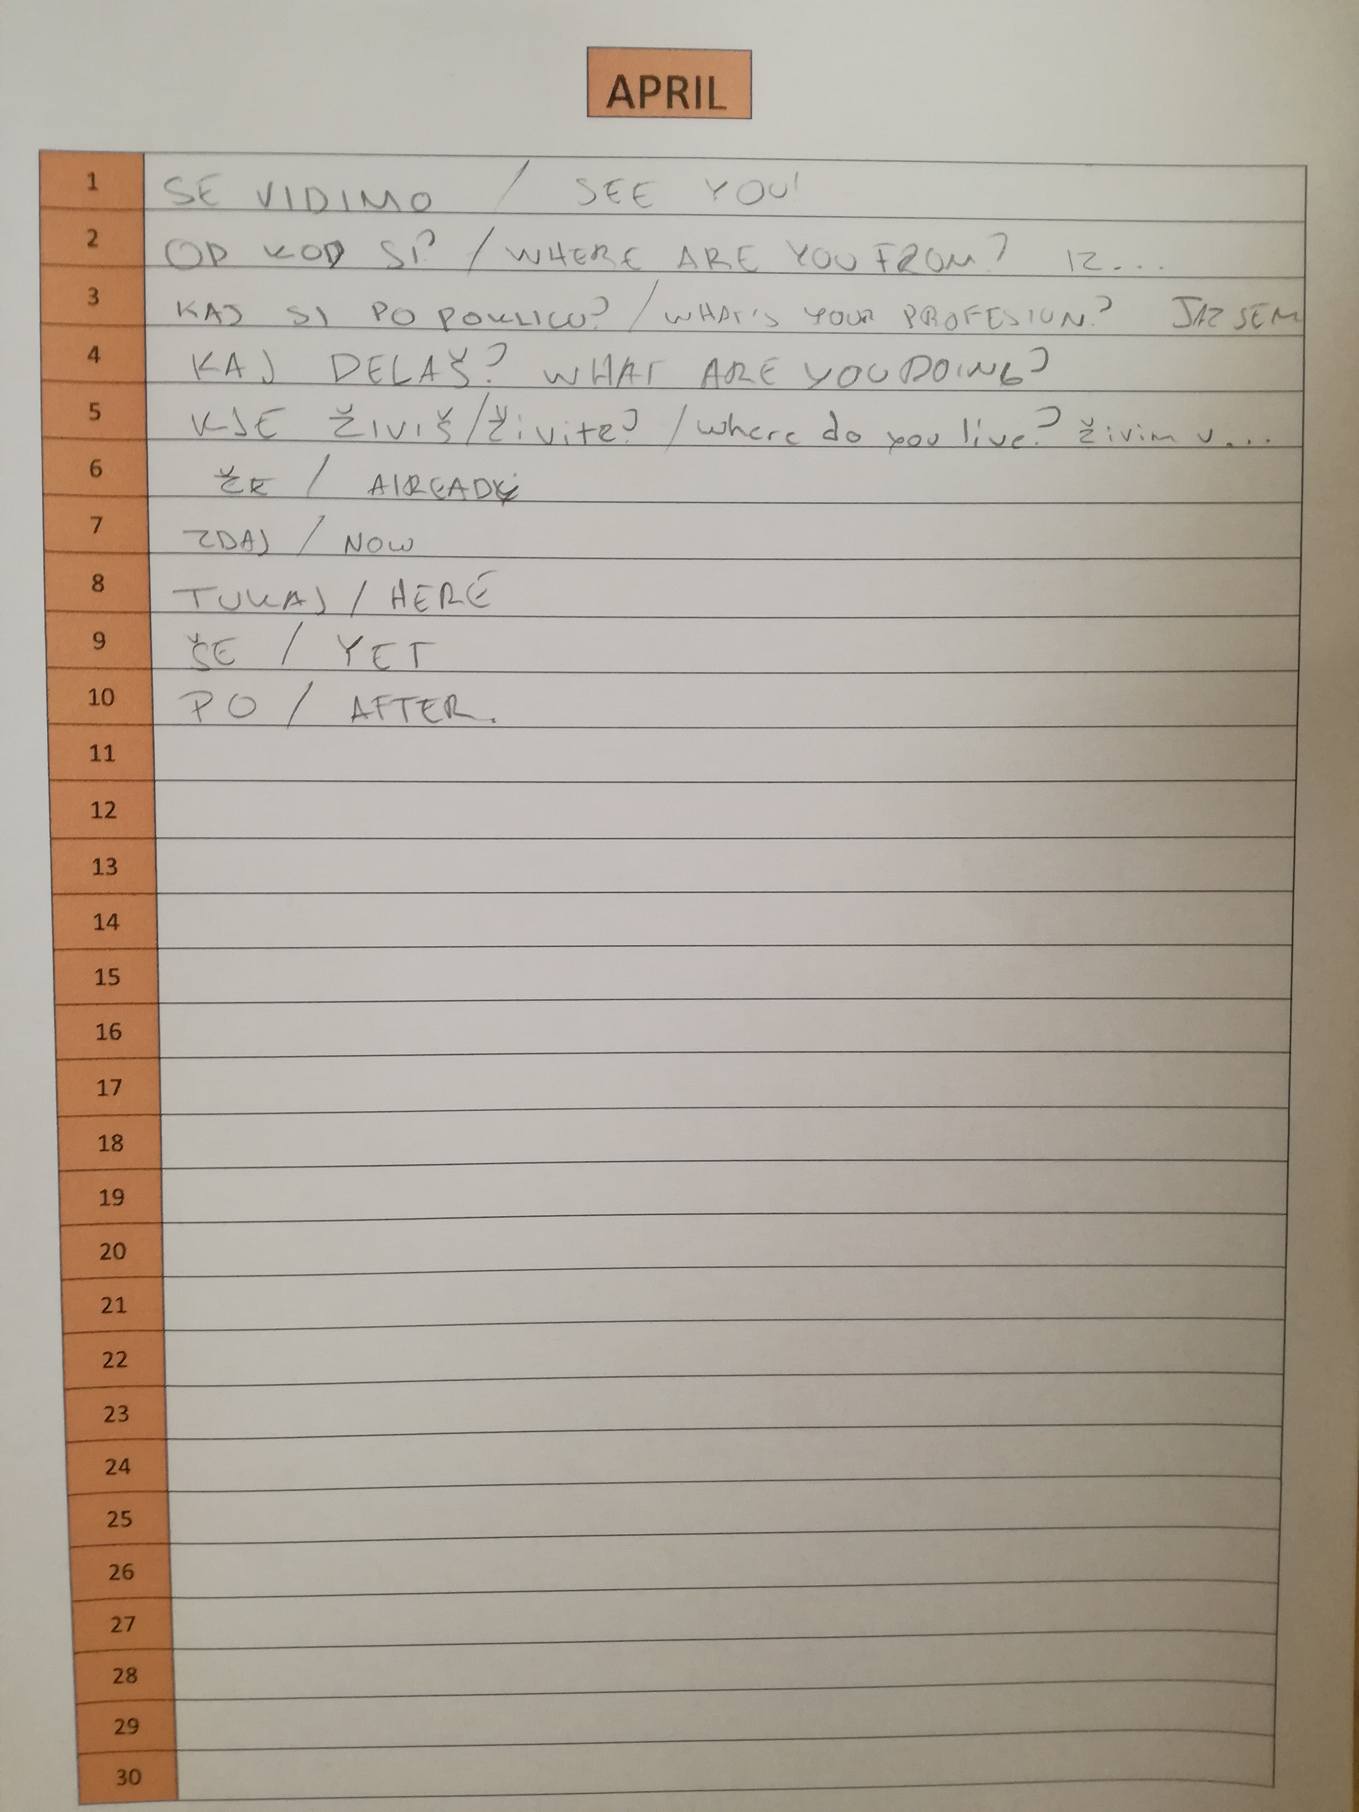 APRIL
1 SE VIDIMO / SEE YOU!
2 OD KOD SI? / WHERE ARE YOU FROM? IZ...
3 KAJ SI PO POKLICU? / WHAT'S YOUR PROFESION? JAZ SEM
4 KAJ DELAŠ? WHAT ARE YOU DOING?
5 KJE ŽIVIŠ/živite? / where do you live? živim v...
6 ŽE / AlREADY
7 ZDAJ / NOW
8 TUKAJ / HERE
9 ŠE / YET
10 PO / AFTER.
11
12
13
14
15
16
17
18
19
20
21
22
23
24
25
26
27
28
29
30